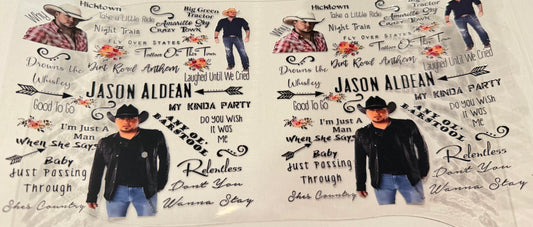 Hicktown
Take a Little Ride
Night Train
Fly Over States
Big Green
Tractor
Amarillo Sky
Crazy Town
Tattoo On This Town
Drowns the
Whiskey
Dirt Road Anthem
Laughed Until We Cried
JASON ALDEAN
Good To Go
MY KINDA PARTY
I'm Just A
Man
ART OF
BARSTOOL
DO YOU WISH
IT WAS
ME
When She Says
Baby
Just Passing
Through
Relentless
Dont You
Wanna Stay
She's Country
Hicktown
Take a Little Ride
Night Train
FLY OVER STATES
Big Green
Tractor
Amarillo Sky
Crazy Town
Tattoo On This Town
Drowns the
Whiskey
Dirt Road Anthem
Laughed Until We Cried
JASON ALDEAN
Good To Go
MY KINDA PARTY
I'm Just A
Man
ART OF
BARSTOOL
DO YOU WISH
IT WAS
ME
When She Says
Baby
Just Passing
Through
Relentless
Dont You
Wanna Stay
She's Country